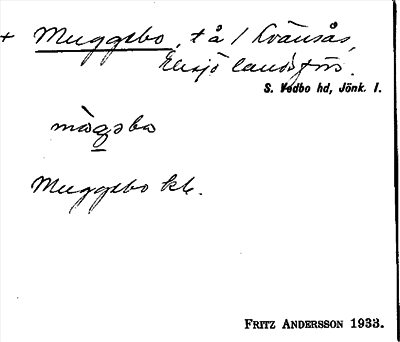 + Muggebo, t å / Kvänsås,
Eksjö landsförs.
S. Vedbo hd, Jönk. l.
màgsba
Muggebo kb.
FRITZ ANDERSSON 1933.